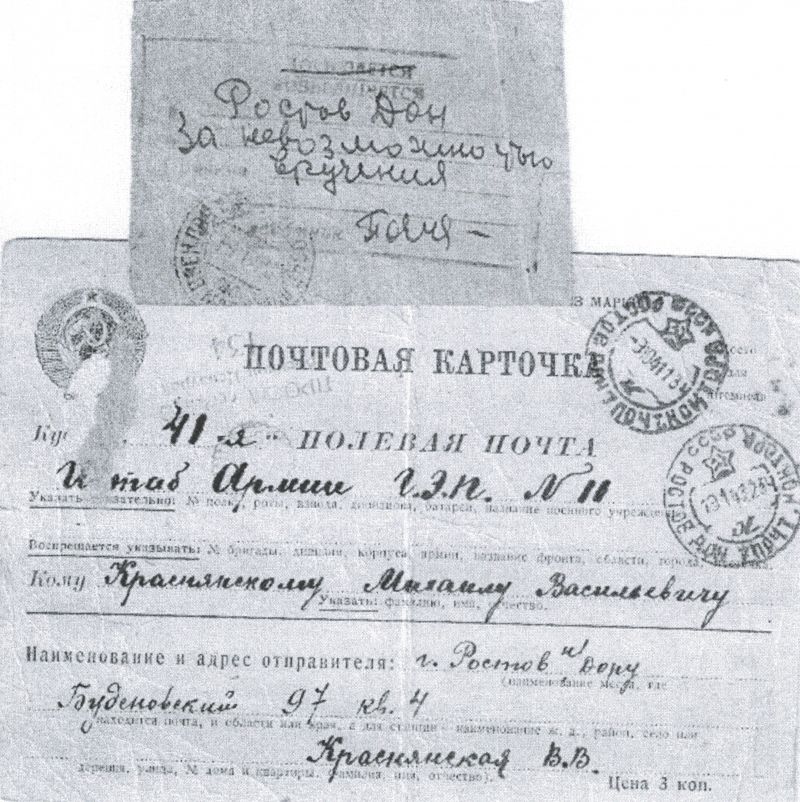 Ростов Дон
За невозможностью
вручения
ПОЧТОВАЯ КАРТОЧКА
41-я ПОЛЕВАЯ ПОЧТА
Штаб Армии Г.Э.П. N 11
Указать обязательно: № полка, роты, взвода, дивизиона, батареи, название военного
Воспрещается указывать: № бригады, дивизии, корпуса, армии, название фронта, области, города,
Кому Краснянскому Михаилу Васильевичу
Указать: фамилию, имя, отчество.
Наименование и адрес отправителя: г. Ростов н/Дону
(наименование места, где
Буденовский 97 кв. 4
находится почта, и области или края, а для станций - наименование ж. д., район, село или
Краснянская В.В.
деревня, улица, № дома и квартиры, фамилия, имя, отчество).
Цена 3 коп.